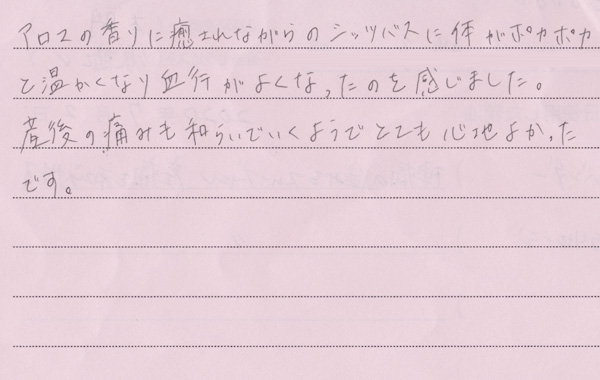 アロマの香りに癒されながらのシッツバスに体がポカポカ
と温かくなり血行がよくなったのを感じました。
産後の痛みも和らいでいくようでとても心地よかった
です。